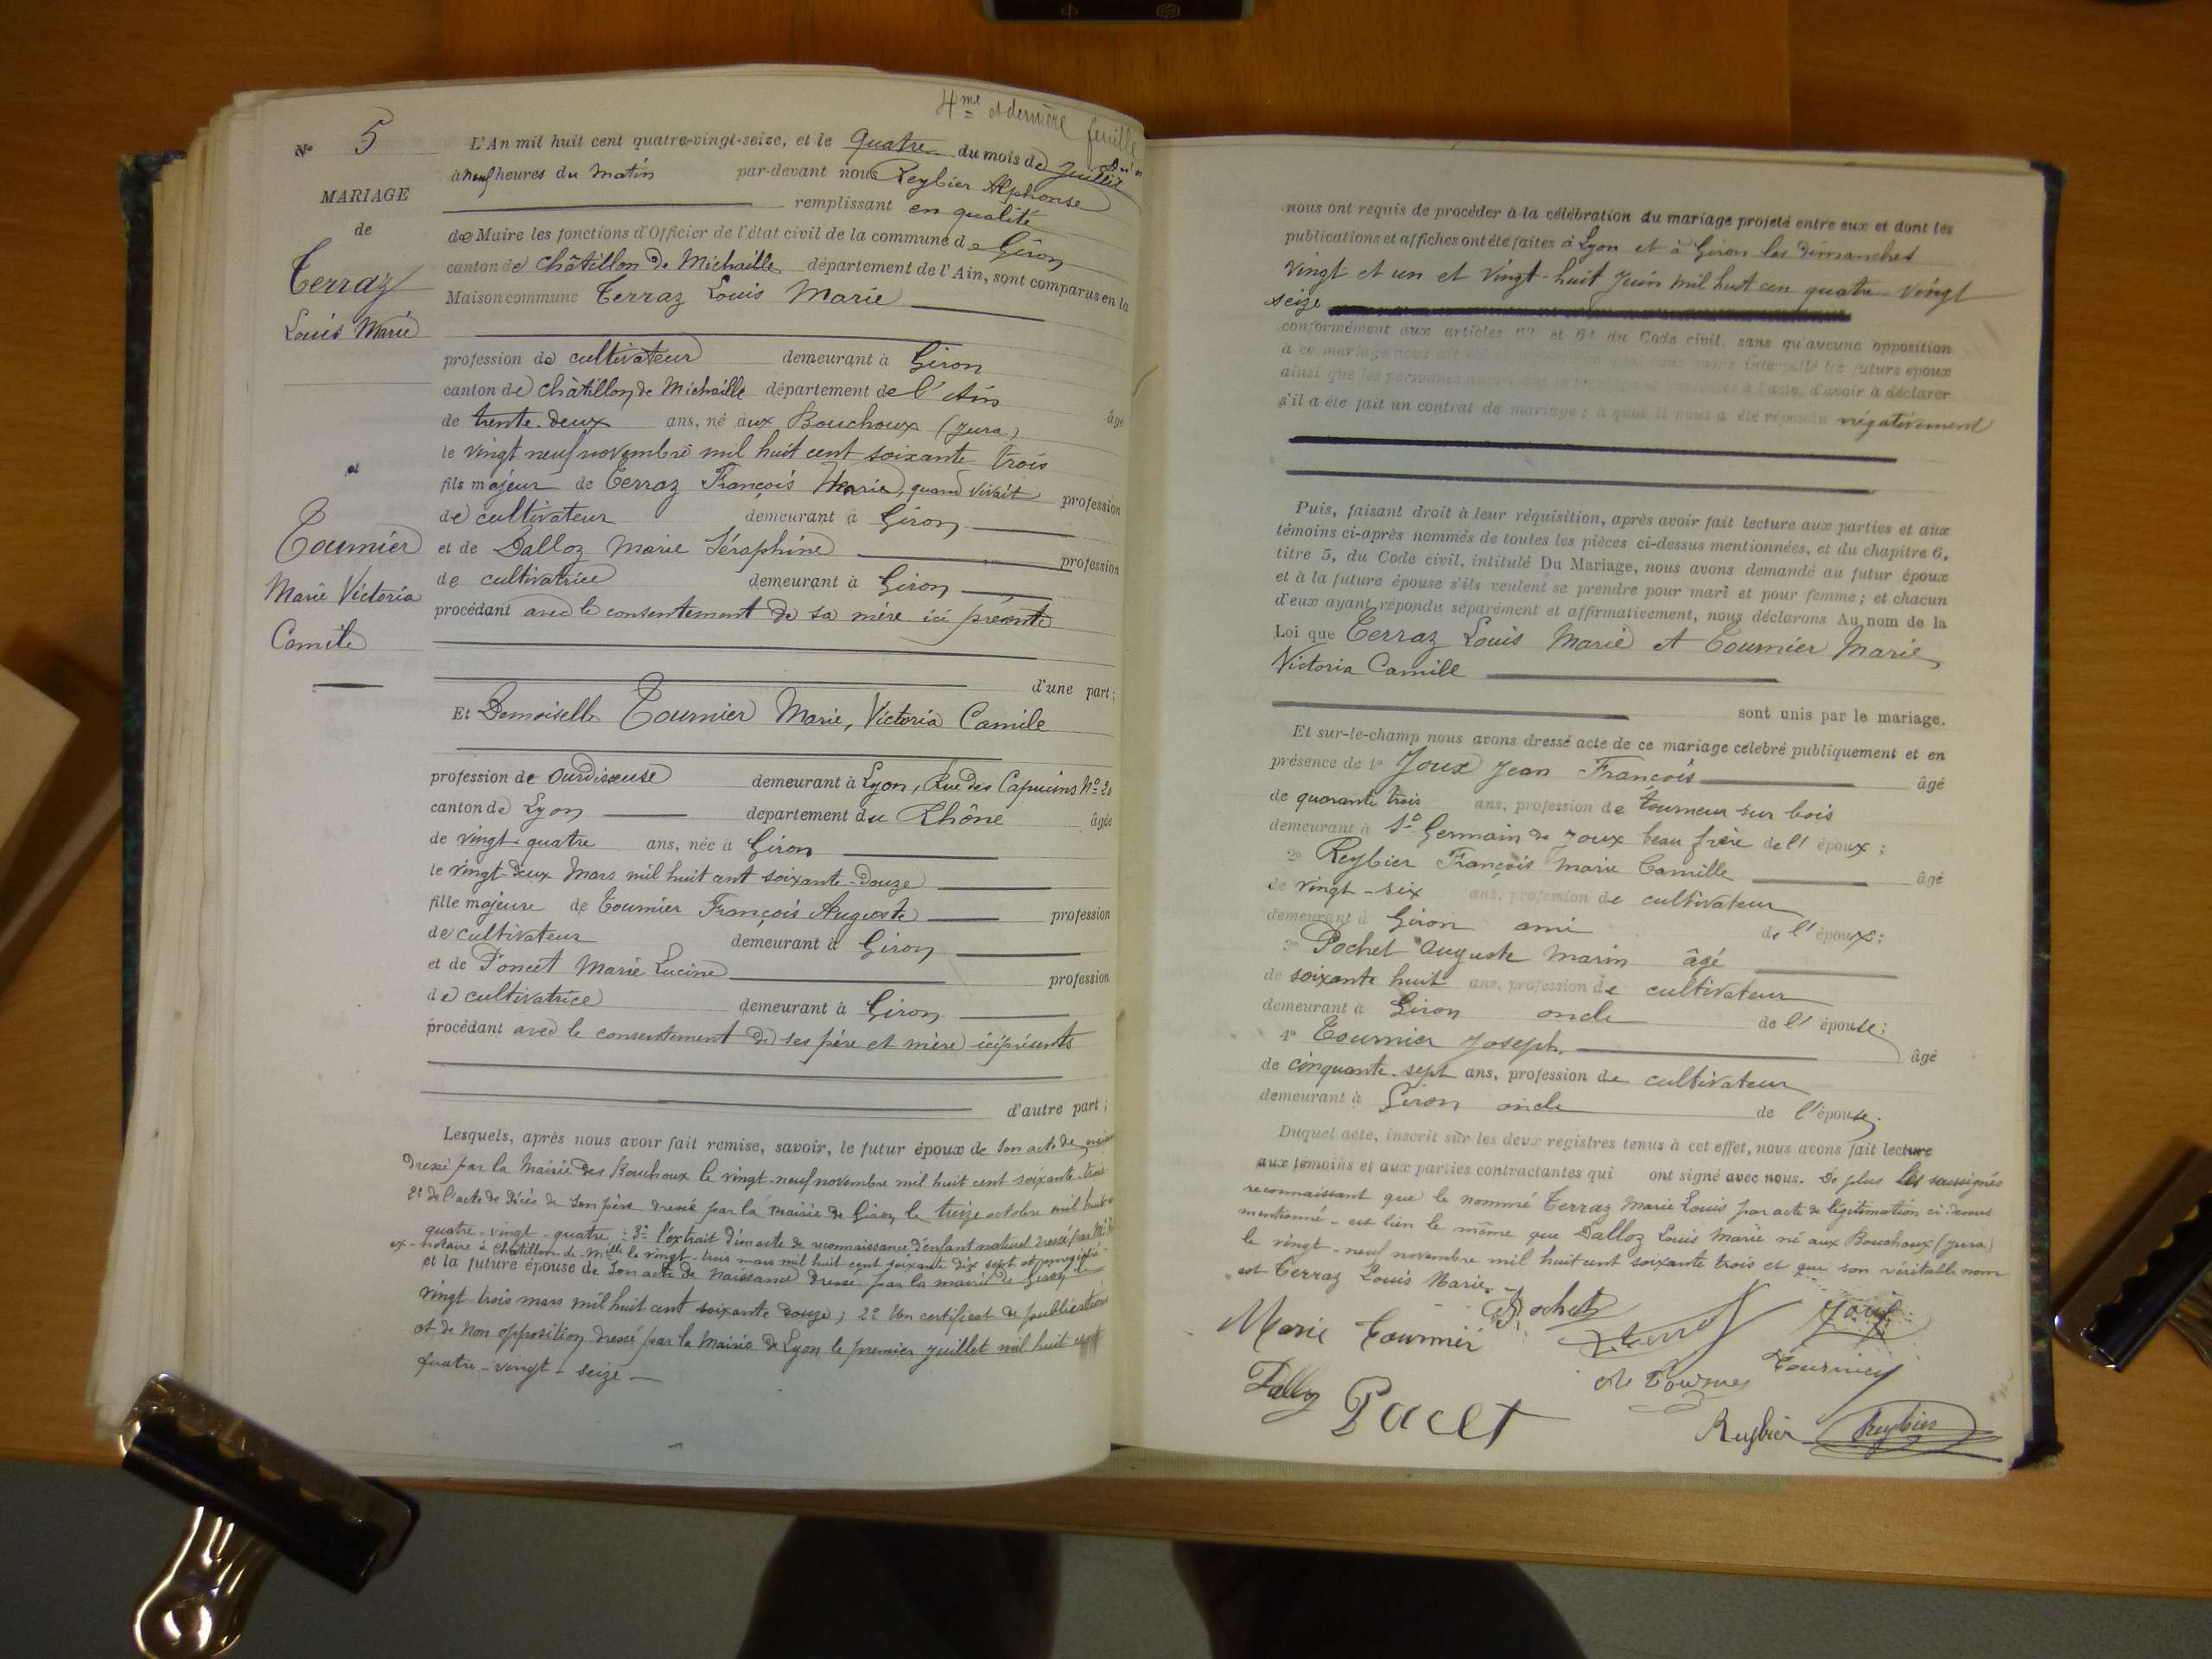 4me et dernière feuille
N° 5
MARIAGE
de
Terraz
Louis Marie
et
Tournier
Marie Victoria
Camile
L'An mil huit cent quatre-vingt-seize, et le quatre du mois de Juillet
à neuf heures du matin par-devant nous Reybier Alphonse
remplissant en qualité
de Maire les fonctions d'Officier de l'état civil de la commune de Giron
canton de Châtillon de Michaille département de l'Ain, sont comparus en la
Maison commune Terraz Louis Marie
profession de cultivateur demeurant à Giron
canton de Châtillon de Michaille département de l'Ain
âgé
de trente-deux ans, né aux Bouchoux (Jura)
le vingt neuf novembre mil huit cent soixante trois
fils majeur de Terraz François Marie, quand vivait profession
de cultivateur demeurant à Giron
et de Dalloz Marie Séraphine profession
de cultivatrice demeurant à Giron
procédant avec le consentement de sa mère ici présente
d'une part;
Et Demoiselle Tournier Marie, Victoria Camile
profession de ourdisseuse demeurant à Lyon, Rue des Capucins N° 20
canton de Lyon département du Rhône âgée
de vingt-quatre ans, née à Giron
le vingt-deux Mars mil huit cent soixante-douze
fille majeure de Tournier François Auguste profession
de cultivateur demeurant à Giron
et de Poncet Marie Lucine profession
de cultivatrice demeurant à Giron
procédant avec le consentement de ses père et mère ici présents
d'autre part;
Lesquels, après nous avoir fait remise, savoir, le futur époux de son acte de
dressé par la Mairie des Bouchoux le vingt-neuf novembre mil huit cent soixante trois
2° de l'acte de décès de son père dressé par la mairie de Giron le treize octobre mil huit
quatre-vingt-quatre : 3° l'extrait d'un acte de reconnaissance d'enfant naturel dressé par Me
ex-notaire à Châtillon-de-Mlle le vingt-trois mars mil huit cent soixante dix sept et enregistré
et la future épouse de son acte de Naissance dressé par la mairie de Giron le
vingt-trois mars mil huit cent soixante douze ; 2° Un certificat de publication
et de non opposition dressé par la Mairie de Lyon le premier juillet mil huit cent
quatre-vingt-seize
nous ont requis de procéder à la célébration du mariage projeté entre eux et dont les
publications et affiches ont été faites à Lyon et à Giron les dimanches
vingt et un et vingt-huit Juin mil huit cen quatre-vingt
seize
conformément aux articles 63 et 64 du Code civil, sans qu'aucune opposition
à ce mariage nous ait été les futurs époux
ainsi que les personnes à l'acte, d'avoir à déclarer
s'il a été fait un contrat de mariage; à quoi il nous a été répondu négativement
Puis, faisant droit à leur réquisition, après avoir fait lecture aux parties et aux
témoins ci-après nommés de toutes les pièces ci-dessus mentionnées, et du chapitre 6,
titre 5, du Code civil, intitulé Du Mariage, nous avons demandé au futur époux
et à la future épouse s'ils veulent se prendre pour mari et pour femme; et chacun
d'eux ayant répondu séparément et affirmativement, nous déclarons Au nom de la
Loi que Terraz Louis Marie et Tournier Marie,
Victoria Camille
sont unis par le mariage.
Et sur-le-champ nous avons dressé acte de ce mariage célébré publiquement et en
présence de 1° Joux Jean François âgé
de quarante trois ans, profession de tourneur sur bois
demeurant à St Germain de Joux beau frère de l'époux;
2° Reybier François Marie Camille âgé
de vingt-six ans, profession de cultivateur
demeurant à Giron ami de l'époux;
3° Pochet Auguste Marin âgé
de soixante huit ans, profession de cultivateur
demeurant à Giron oncle de l'épouse;
4° Tournier Joseph âgé
de cinquante-sept ans, profession de cultivateur
demeurant à Giron oncle de l'épouse.
Duquel acte, inscrit sur les deux registres tenus à cet effet, nous avons fait lecture
aux témoins et aux parties contractantes qui ont signé avec nous. De plus les soussignés
reconnaissant que le nommé Terraz Marie Louis par acte de légitimation ci-dessus
mentionné - est bien le même que Dalloz Louis Marie né aux Bouchoux (Jura)
le vingt-neuf novembre mil huit cent soixante trois et que son véritable nom
est Terraz Louis Marie.
Pochet
Marie Tournier Terraz Joux
Tournier
Dalloz
Reybier Reybier